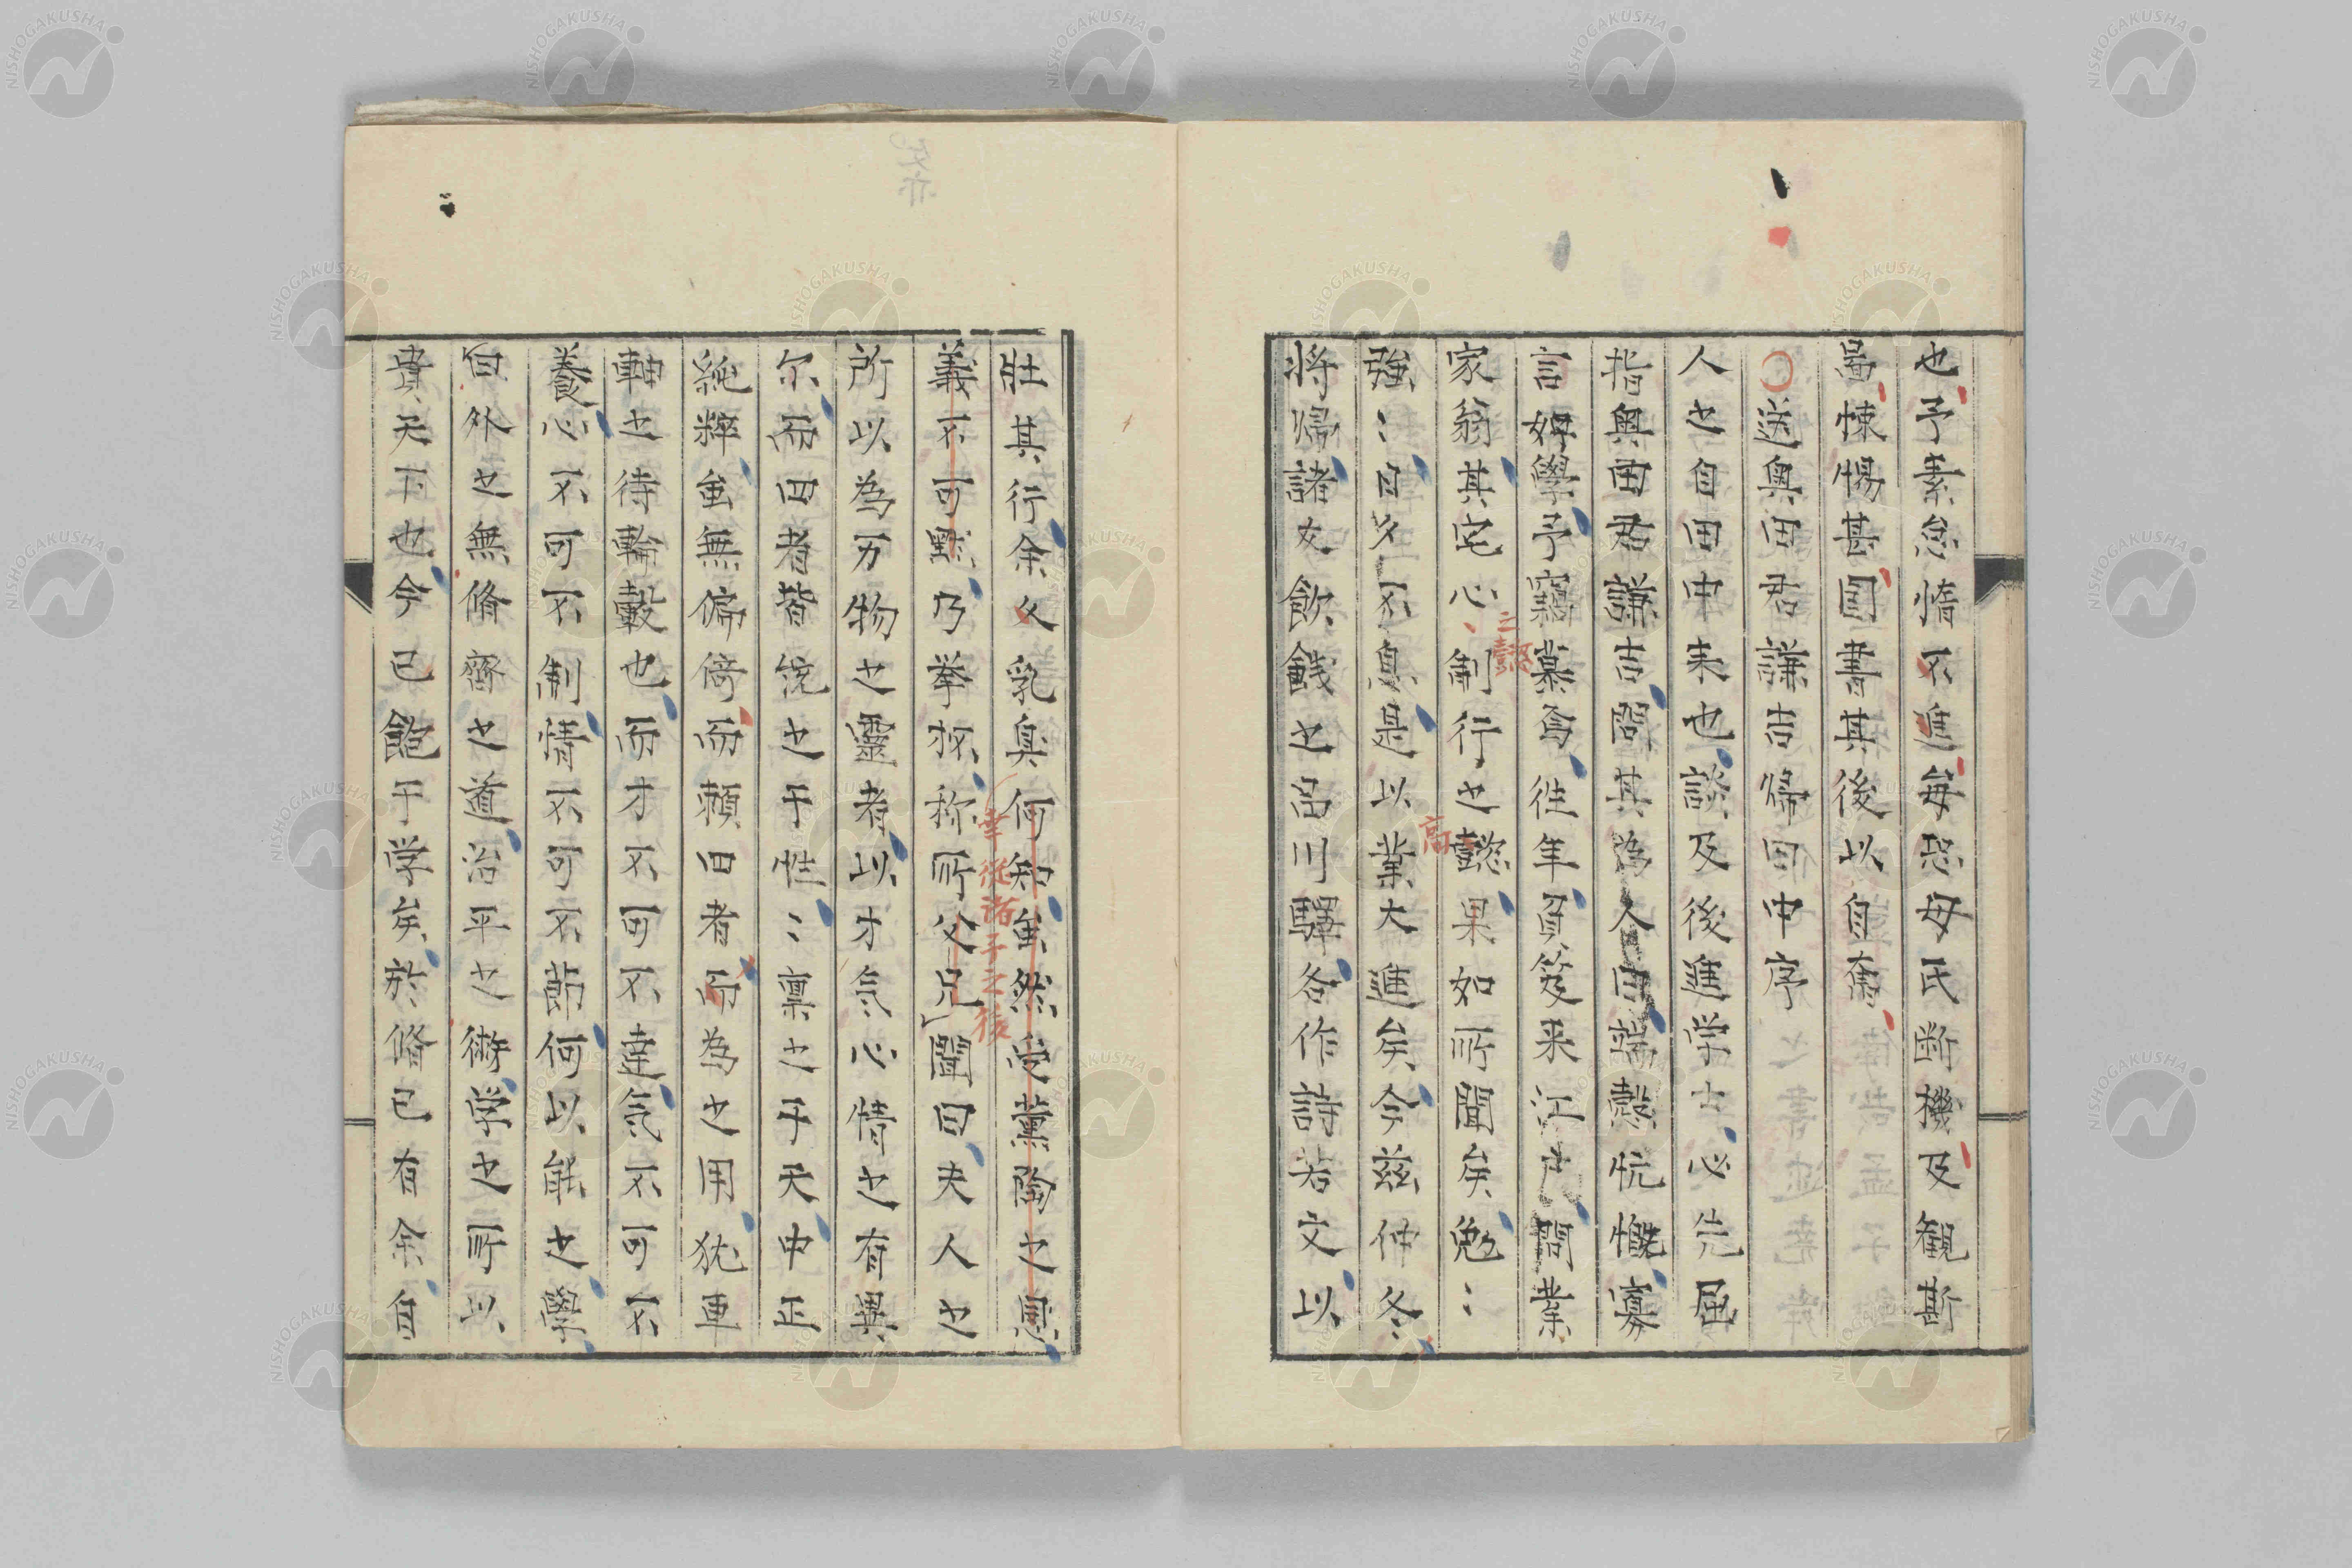 也予素怠惰不進毎恐母氏断機及観斯
啚悚惕甚因書其後以自奮
○送奥田君謙吉帰田中序
人之自田中来也談及後進学士必先屈
指奥田君謙吉問其為人曰端愨忼慨寡
言好學予竊慕焉往年負笈来江戸問業
家翁其宅心制行之懿果如所聞矣勉〻
之愨
高
強〻自夂不息是以業大進矣今茲仲冬
将帰諸友飲餞之品川驛各作詩若文以
壮其行余乂乳臭何知虽然受薫陶之恩
幸從諸子之後
義不可黙乃挙秡称所父兄聞曰夫人之
所以為万物之靈者以才氣心情之有異
尓而四者皆統之于性〻禀之乎天中正
純粹虽無偏倚而頼四者而為之用犹車
軸之待輪轂也而才不可不達氣不可不
養心不可不制情不可不節何以能之學
自外之無脩齊之道治平之術学之所以
貴天下也今已飽于学矣於脩已有余自